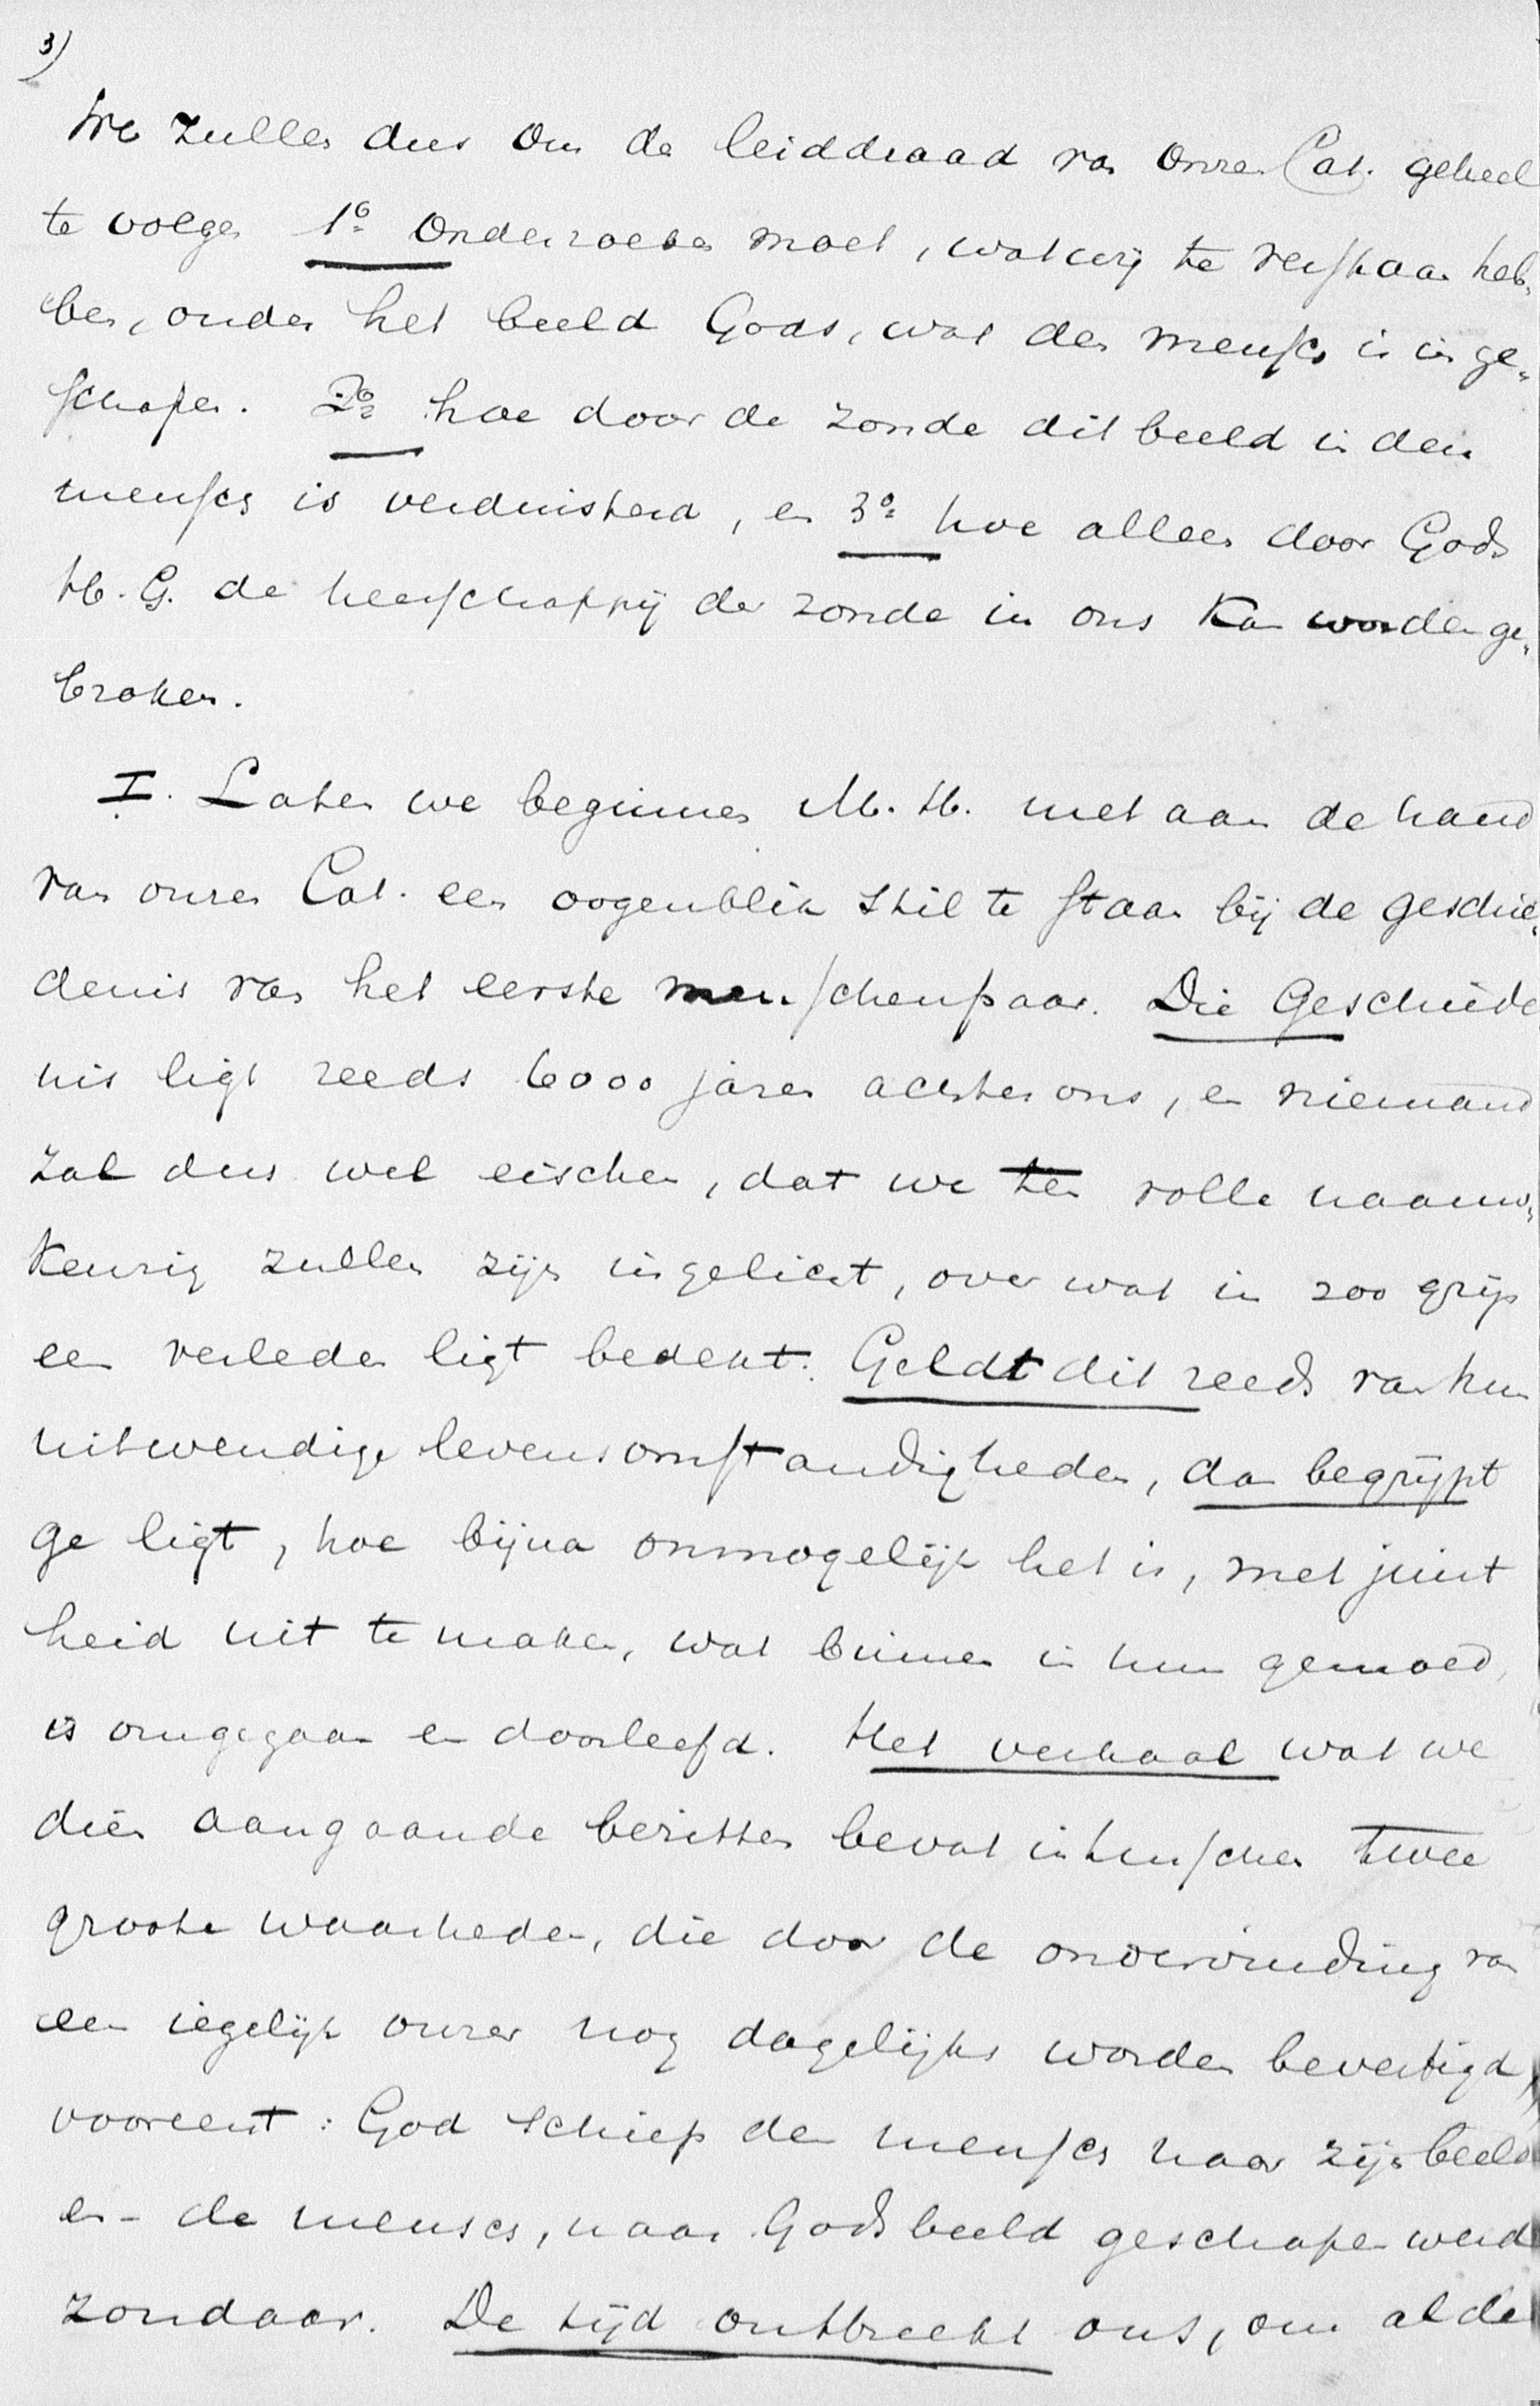 3)
We zullen dus om de leiddraad van onzen Cat. geheel
te volgen 1o onderzoeken moet, wat wij te verstaan heb„
ben, onder het beeld Gods, wat den mensch is inge„
schapen. 2o hoe door de zonde dit beeld in den
mensch is verduisterd, en 3o hoe alleen door Gods
H. G. de heerschappij der zonde in ons kan worden ge„
broken.
I. Laten we beginnen M. H. met aan de hand
van onzen Cat. een oogenblik stil te staan bij de geschie„
denis van het eerste menschenpaar. Die Geschiede
nis ligt reeds 6000 jaren achter ons, en niemand
zal dus wel eischen, dat we ten volle naauw„
keurig zullen zijn ingelicht, over wat in zoo grijs
een verleden ligt bedekt. Geldt dit reeds van hun
uitwendige levensomstandigheden, dan begrijpt
ge ligt, hoe bijna onmogelijk het is, met juist
heid uit te maken, wat binnen in hun gemoed,
is omgegaan en doorleefd. Het verhaal wat we
dien aangaande bezitten bevat intusschen twee
groote waarheden, die door de ondervinding van
een iegelijk onzer nog dagelijks worden bevestigd,
vooreerst: God schiep den mensch naar zijn beeld
en - de mensch, naar Gods beeld geschapen werd
zondaar. De tijd ontbreekt ons, om al de